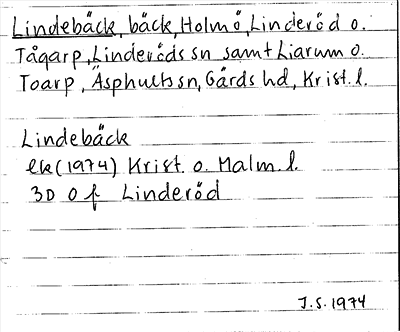 Lindebäck, bäck, Holmö, Linderöd o.
Tågarp, Linderöds sn samt Liarum o.
Toarp, Äsphults sn, Gärds hd, Krist. l.
Lindebäck
ek (1974) Krist. o. Malm. l.
3D 0f Linderöd
J.S. 1974